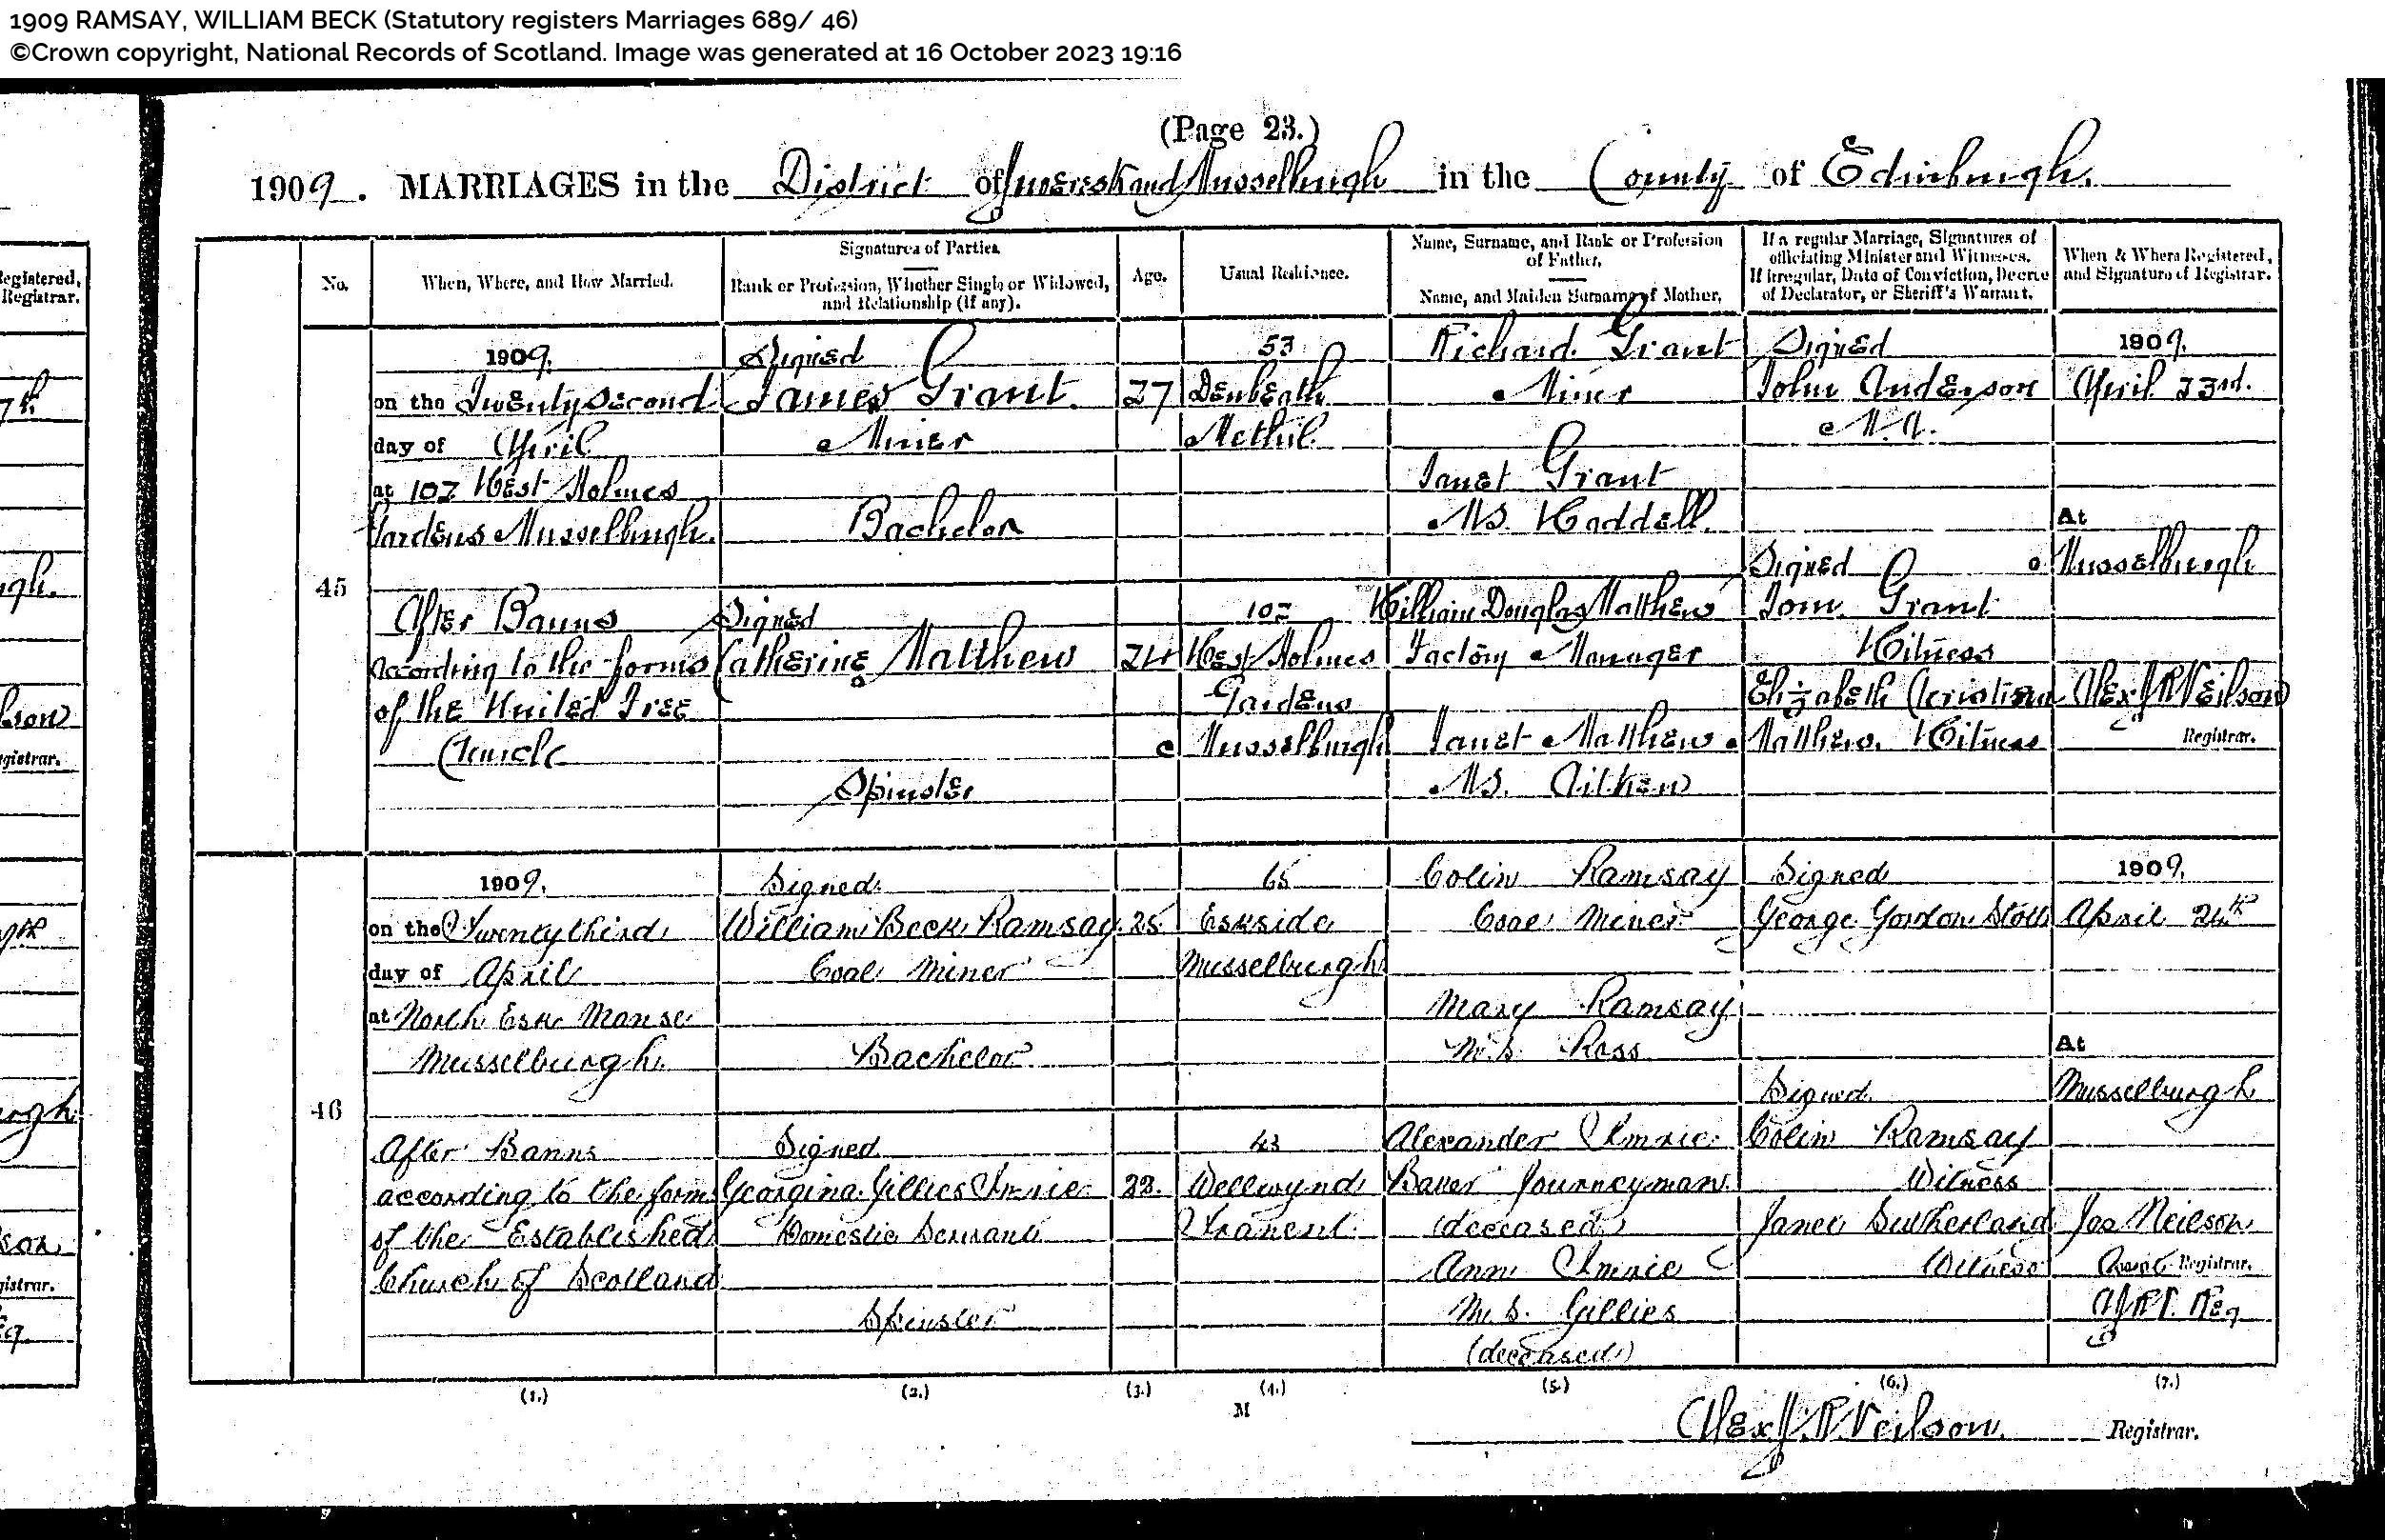 1909 RAMSAY, WILLIAM BECK (Statutory registers Marriages 689/ 46)
©Crown copyright, National Records of Scotland. Image was generated at 16 October 2023 19:16
(Page 23.)
1909. MARRIAGES in the District of Inveresk and Musselburgh in the County of Edinburgh.
No.
When, Where, and How Married.
Signatures of Parties.
Rank or Profession, Whether Single or Widowed,
and Relationship (if any).
Age.
Usual Residence.
Name, Surname, and Rank or Profession
of Father.
Name, and Maiden Surname of Mother.
If a regular Marriage, Signatures of
officiating Minister and Witnesses.
If irregular, Date of Conviction, Decree
of Declarator, or Sheriff's Warrant.
When & Where Registered,
and Signature of Registrar.
45
1909.
on the Twenty second
day of April
at 102 West Holmes
Gardens Musselburgh.
After Banns
According to the forms
of the United Free
Church
Signed
James Grant.
Miner
Bachelor
Signed
Catherine Matthew
Spinster
27
24
53
Denbeath
Methil.
102
West Holmes
Gardens
Musselburgh
Richard Grant
Miner
Janet Grant
M.S. Waddell.
William Douglas Matthew
Factory Manager
Janet Matthew
M.S. Aitken
Signed
John Anderson
M.A.
Signed
Tom Grant
Witness
Elizabeth Christina
Matthew. Witness
1909.
April 23rd.
At
Musselburgh
Alex J R Neilson
Registrar.
46
1909.
on the Twenty third
day of April
at North Esk Manse
Musselburgh.
After Banns
according to the forms
of the Established
Church of Scotland
Signed
William Beck Ramsay
Coal Miner
Bachelor
Signed
Georgina Gillies Imrie
Domestic Servant
Spinster
25.
22.
65
Eskside
Musselburgh
43
Wellwynd
Tranent.
Colin Ramsay
Coal Miner
Mary Ramsay
M.S. Ross
Alexander Imrie
Baker Journeyman
(deceased)
Ann Imrie
M.S. Gillies
(deceased)
Signed
George Gordon Stott
Signed
Colin Ramsay
Witness
Janet Sutherland
Witness
1909.
April 24th
At
Musselburgh
Jas Neilson
Asst Registrar.
(1.) (2.) (3.) (4.) (5.) (6.) (7.)
M
Alex J. R. Neilson. Registrar.